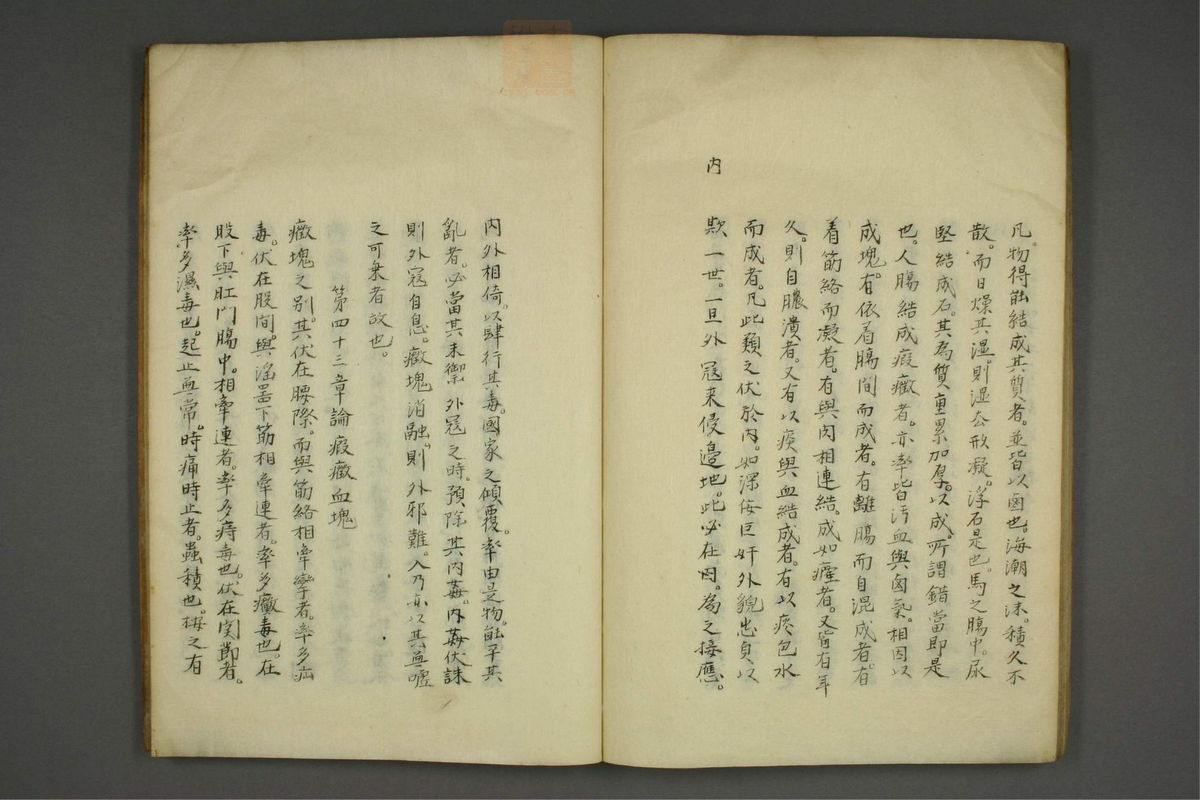 凡。物得能結成其質者。並皆以鹵也。海潮之沫。積久不
散。而日燥其濕。則濕公形凝。浮石是也。馬之腸中。尿
堅結成石。其為質重累加厚。以成。所謂錯當即是
也。人腸結成瘕癥者。亦率皆汚血與鹵氣。相因以
成塊。有依着腸間而成者。有離腸而自混成者。有
着筋絡而凝者。有與肉相連結。成如癦者。又有年
久。則自膿潰者。又有以痰與血結成者。有以疼包水
而成者。凡此類之伏於內。如深侫巨奸外貌忠貞以
欺一世。一旦外寇来侵邉地。此必在內。為之接應。
內
內外相倚。以肆行其毒。國家之傾覆。率由是物。能平其
亂者。必當其未禦外寇之時。預除其內姦。內姦伏誅
則外寇自息。癥塊消融。則外邪難。入乃亦以其無嘘
之可乗者故也。
第四十三章論瘕癥血塊
癥塊之别。其伏在腰際。而與筋絡相牽攣者。率多疝
毒。伏在股間。與淫器下筋相牽連者。率多癥毒也。在
股下與肛門腸中。相牽連者。率多痔毒也。伏在関節者。
率多濕毒也。起止無常。時痛時止者。蟲積也。按之有